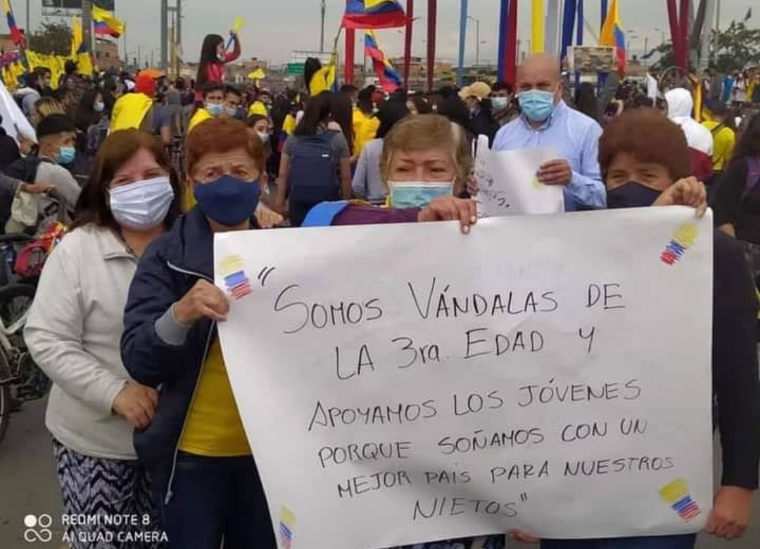 "SOMOS VÁNDALAS DE
LA 3ra. EDAD Y
APOYAMOS LOS JÓVENES
PORQUE SOÑAMOS CON UN
MEJOR PAIS PARA NUESTROS
NIETOS"
REDMI NOTE 8
AI QUAD CAMERA